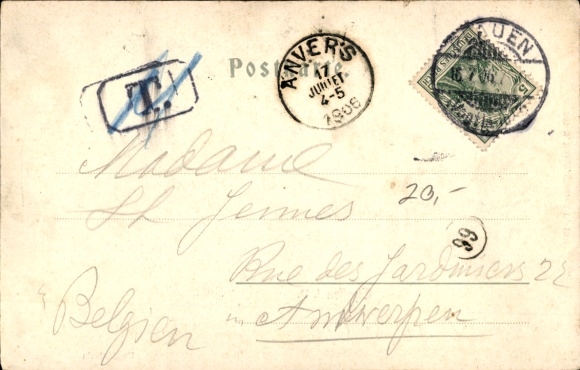 Postkarte
T.
ANVERS
17
JUILLET
4-5
1906
AUEN
5
Madame
St Jennes
20,-
99
Rue des Jardiniers 22
Belgien
Antwerpen